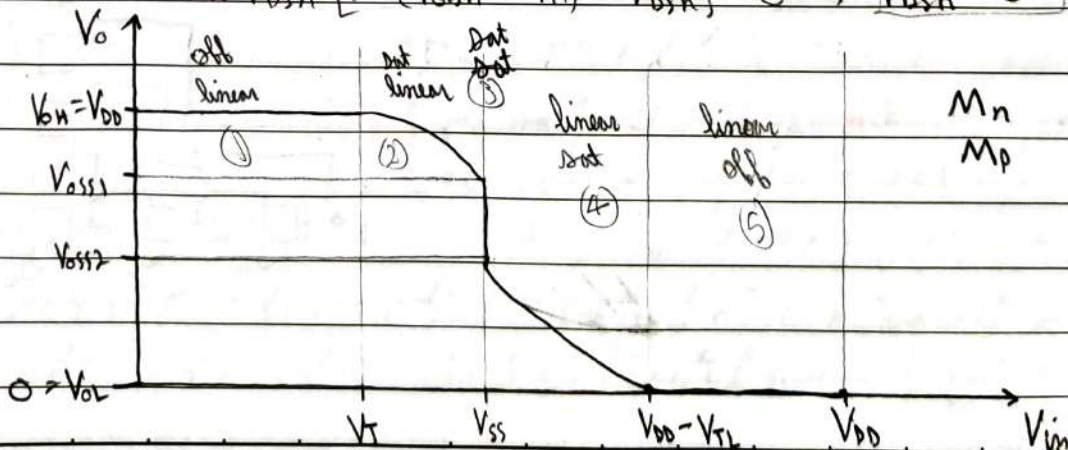 V₀
off
linear
①
sat
linear
②
sat
sat
③
linear
sat
④
linear
off
⑤
Mn
Mp
VOH = VDD
VOSS1
VOSS2
0 = VOL
VT
VSS
VDD - VTL
VDD
Vin